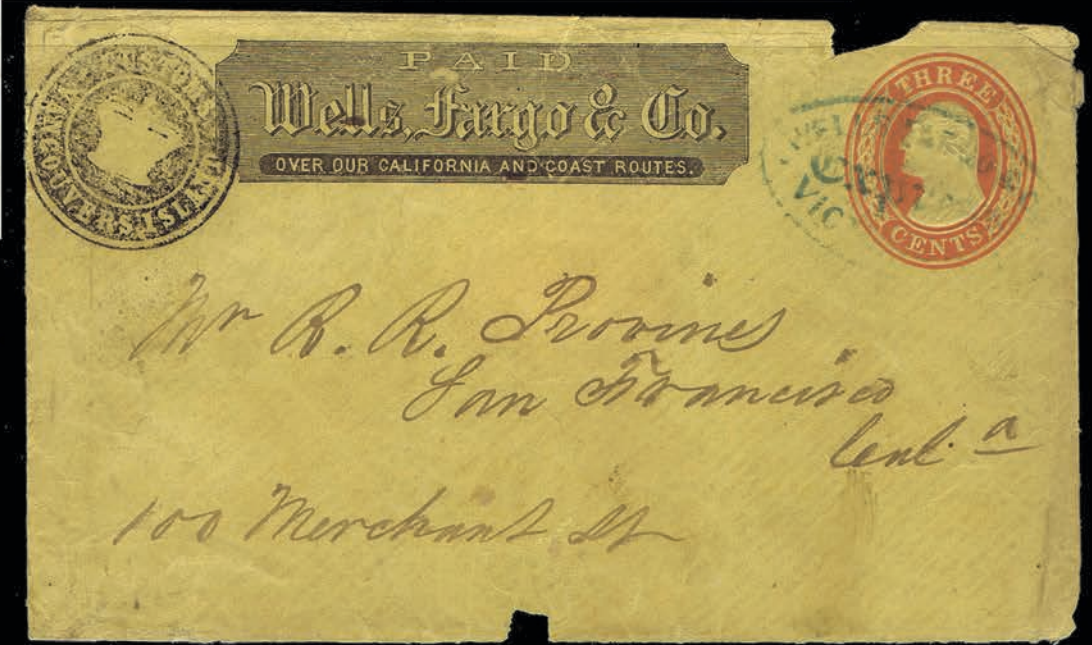 PAID
Wells, Fargo & Co.
OVER OUR CALIFORNIA AND COAST ROUTES.
THREE
CENTS
VIC
Mr R. R. Provines
San Francisco
Cal.a
100 Merchant St